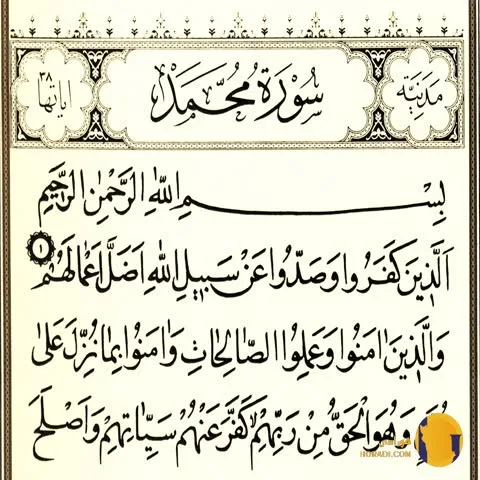 مدنية
سورة محمد
آياتها ٣٨
بِسْمِ اللهِ الرَّحْمٰنِ الرَّحِيمِ
اَلَّذِينَ كَفَرُوا وَصَدُّوا عَنْ سَبِيلِ اللهِ اَضَلَّ اَعْمَالَهُمْ ١
وَالَّذِينَ اٰمَنُوا وَعَمِلُوا الصَّالِحَاتِ وَاٰمَنُوا بِمَا نُزِّلَ عَلٰى
وَهُوَ الْحَقُّ مِنْ رَبِّهِمْ كَفَّرَ عَنْهُمْ سَيِّاٰتِهِمْ وَاَصْلَحَ
HORADI.COM